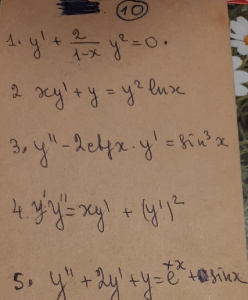 10
1. y' + 2/(1-x) y² = 0.
2 xy' + y = y² lnx
3. y'' - 2ctgx · y' = sin³x
4. y'y'' = xy' + (y')²
5. y'' + 2y' + y = eˣ + sinx